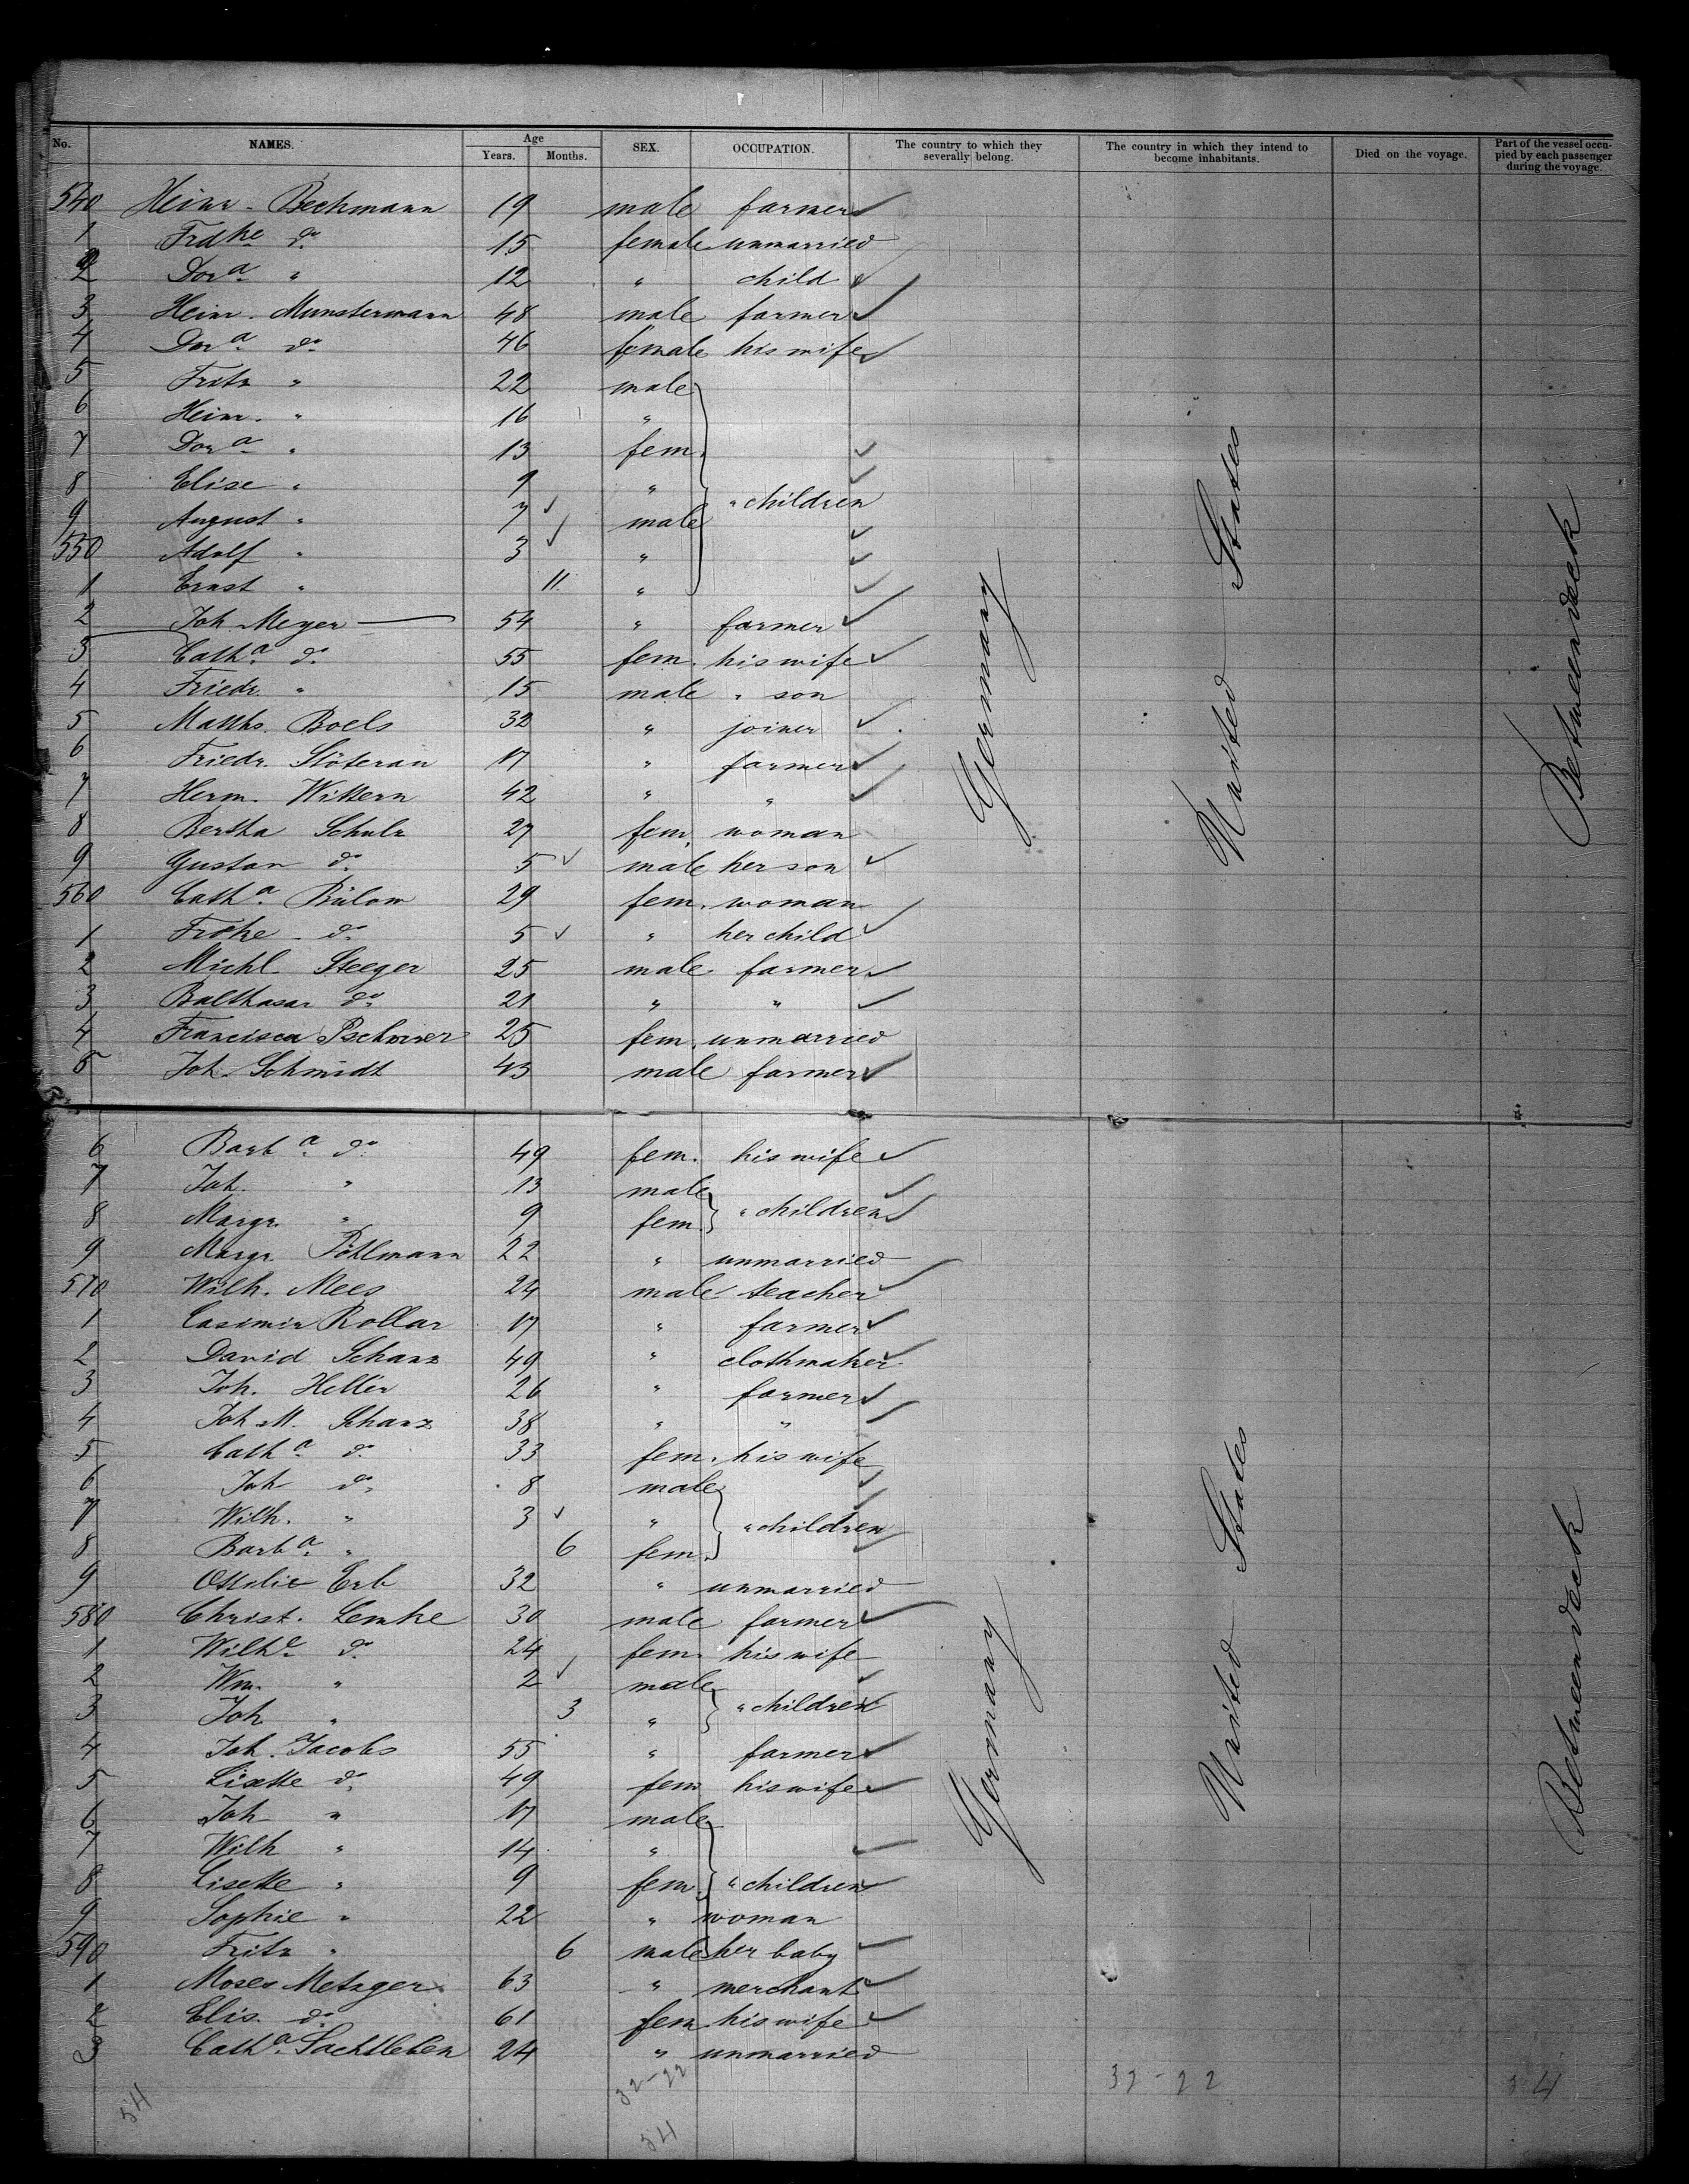 No. NAMES. Age Years. Months. SEX. OCCUPATION. The country to which they severally belong. The country in which they intend to become inhabitants. Died on the voyage. Part of the vessel occupied by each passenger during the voyage.
540 Heinr. Bechmann 19 male farmer
1 Frdke do 15 female unmarried
2 Dora " 12 " child
3 Heinr. Munstermann 48 male farmer
4 Dora do 46 female his wife
5 Fritz " 22 male
6 Heinr. " 16 "
7 Dora " 13 fem.
8 Elise " 9 " " children
9 August " 7 male
550 Adolf " 3 "
1 Ernst " 11 "
2 Joh Meyer 54 " farmer
3 Catha do 55 fem. his wife
4 Friedr. " 15 male " son
5 Matths. Boels 32 " joiner
6 Friedr. Stöteran 17 " farmer
7 Herm. Wittern 42 " "
8 Bertha Schulz 27 fem. woman
9 Gustav do 5 male her son
560 Catha Bülow 29 fem. woman
1 Frdke do 5 " her child
2 Michl Steeger 25 male farmer
3 Balthasar do 21 " "
4 Francisca 25 fem. unmarried
5 Joh. Schmidt 43 male farmer
Germany United States Betweendeck
6 Barba do 49 fem. his wife
7 Joh. " 13 male
8 Margr. " 9 fem. " children
9 Margr. Pöhlmann 22 " unmarried
570 Wilh. Mees 24 male teacher
1 Casimir Kollar 17 " farmer
2 David Schanz 49 " clothmaker
3 Joh. Heller 26 " farmer
4 Joh M. Schanz 38 " "
5 Catha do 33 fem. his wife
6 Joh do 8 male
7 Wilh. " 3 " " children
8 Barba " 6 fem.
9 Ottilie Erb 32 " unmarried
580 Christ. Lemke 30 male farmer
1 Wilhe do 24 fem. his wife
2 Wm. " 2 male
3 Joh " 3 " " children
4 Joh. Jacobs 55 " farmer
5 Lisette do 49 fem his wife
6 Joh " 17 male
7 Wilh " 14 "
8 Lisette " 9 fem. " children
9 Sophie " 22 " woman
590 Fritz " 6 male her baby
1 Moses Metzger 63 " merchant
2 Elis. do 61 fem his wife
3 Catha Sachtleben 24 " unmarried
Germany United States Betweendeck
54 32-22 32-22 54
54